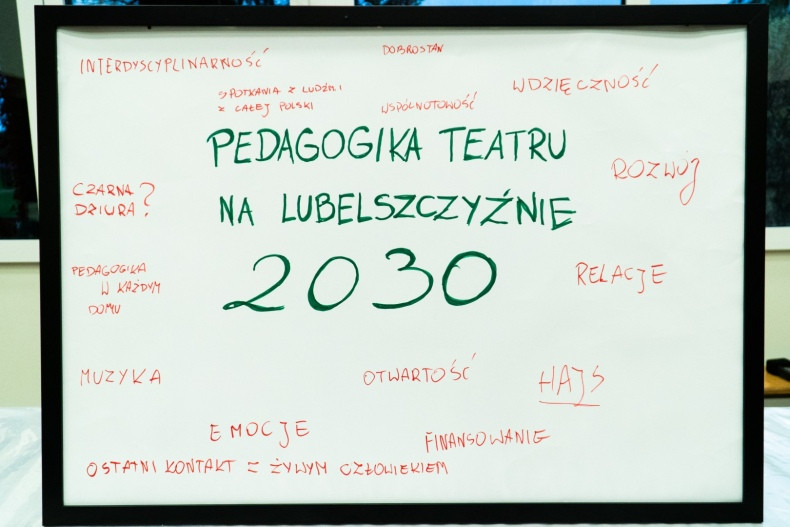 INTERDYSCYPLINARNOŚĆ
DOBROSTAN
SPOTKANIA Z LUDŹMI
Z CAŁEJ POLSKI
WSPÓLNOTOWOŚĆ
WDZIĘCZNOŚĆ
PEDAGOGIKA TEATRU
NA LUBELSZCZYŹNIE
2030
ROZWÓJ
CZARNA
DZIURA?
PEDAGOGIKA
W KAŻDYM
DOMU
RELACJE
MUZYKA
OTWARTOŚĆ
HAJS
EMOCJE
FINANSOWANIE
OSTATNI KONTAKT Z ŻYWYM CZŁOWIEKIEM